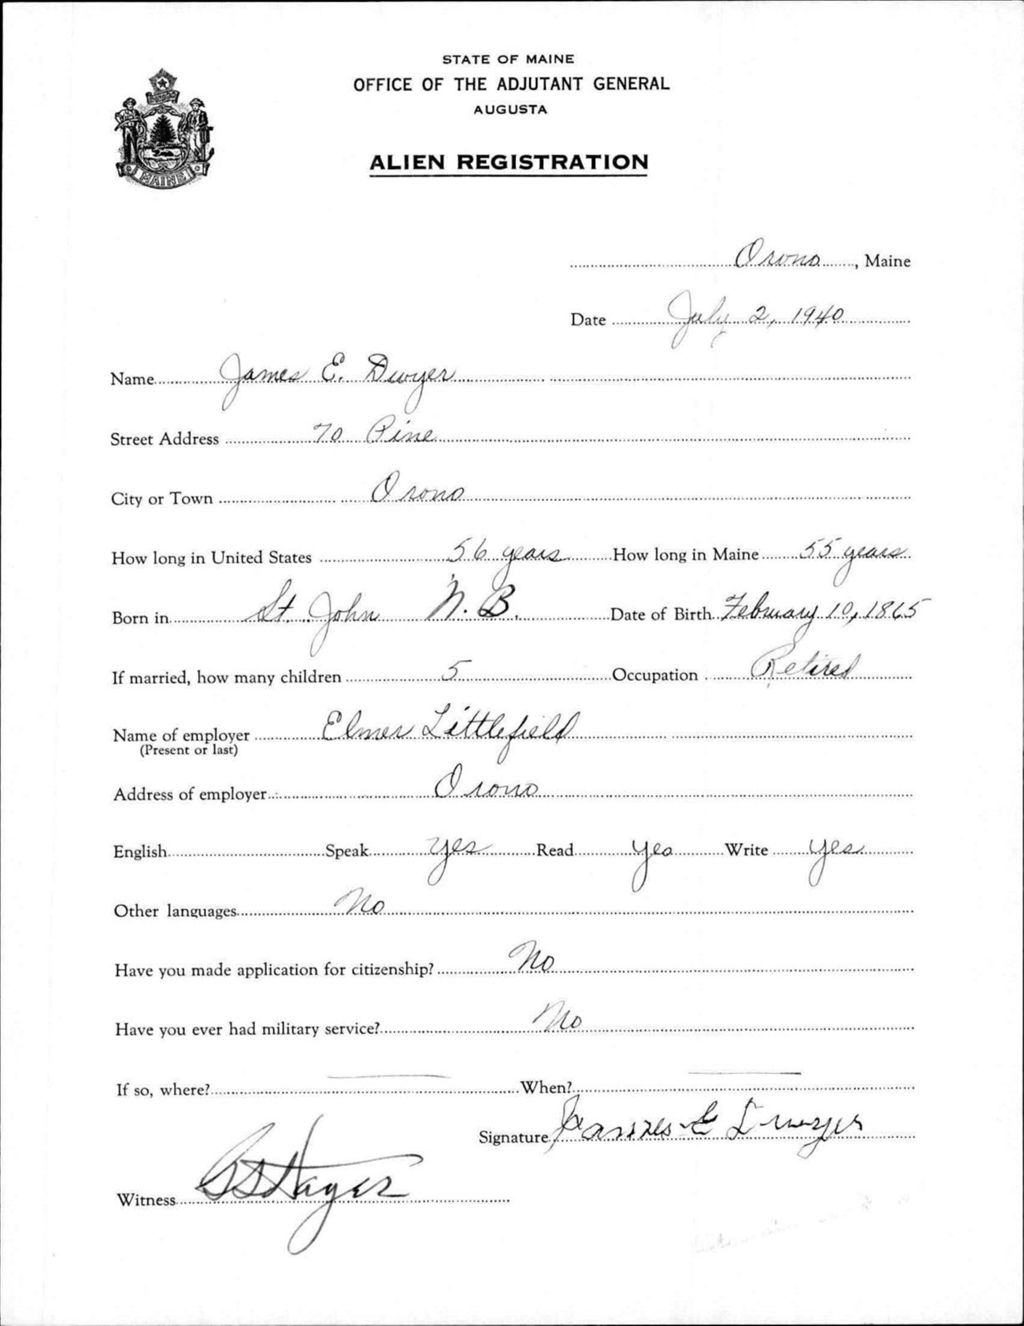 STATE OF MAINE
OFFICE OF THE ADJUTANT GENERAL
AUGUSTA
ALIEN REGISTRATION
MAINE
Orono, Maine
Date July 2, 1940
Name James E. Dwyer
Street Address 70 Pine
City or Town Orono
How long in United States 56 years How long in Maine 55 years
Born in St. John N. B. Date of Birth February 10, 1865
If married, how many children 5 Occupation Retired
Name of employer Elmer Littlefield
(Present or last)
Address of employer Orono
English Speak yes Read yes Write yes
Other languages No
Have you made application for citizenship? No
Have you ever had military service? No
If so, where? — When? —
Signature James E Dwyer
Witness